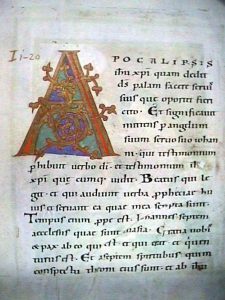 I 1-20
APOCALIPSIS
ihu xpi quam dedit
ds palam facere seruis
suis que oportet fieri
cito. Et significauit
mittens p angelum
suum seruo suo iohan
ni. qui testimonium
phibuit uerbo di et testimonium ihu
xpi quecumq; uidit. Beatus qui le
git et qui audiunt uerba pphetiae hui
us et seruant ea quae in ea scripta sunt
Tempus enim ppe est. Iohannes septem
ecclesiis quae sunt in asia. Gratia uobis
& pax ab eo qui est et qui erat et qui uen
turus est. Et a septem spiritibus qui in
conspectu throni eius sunt. et ab ihu